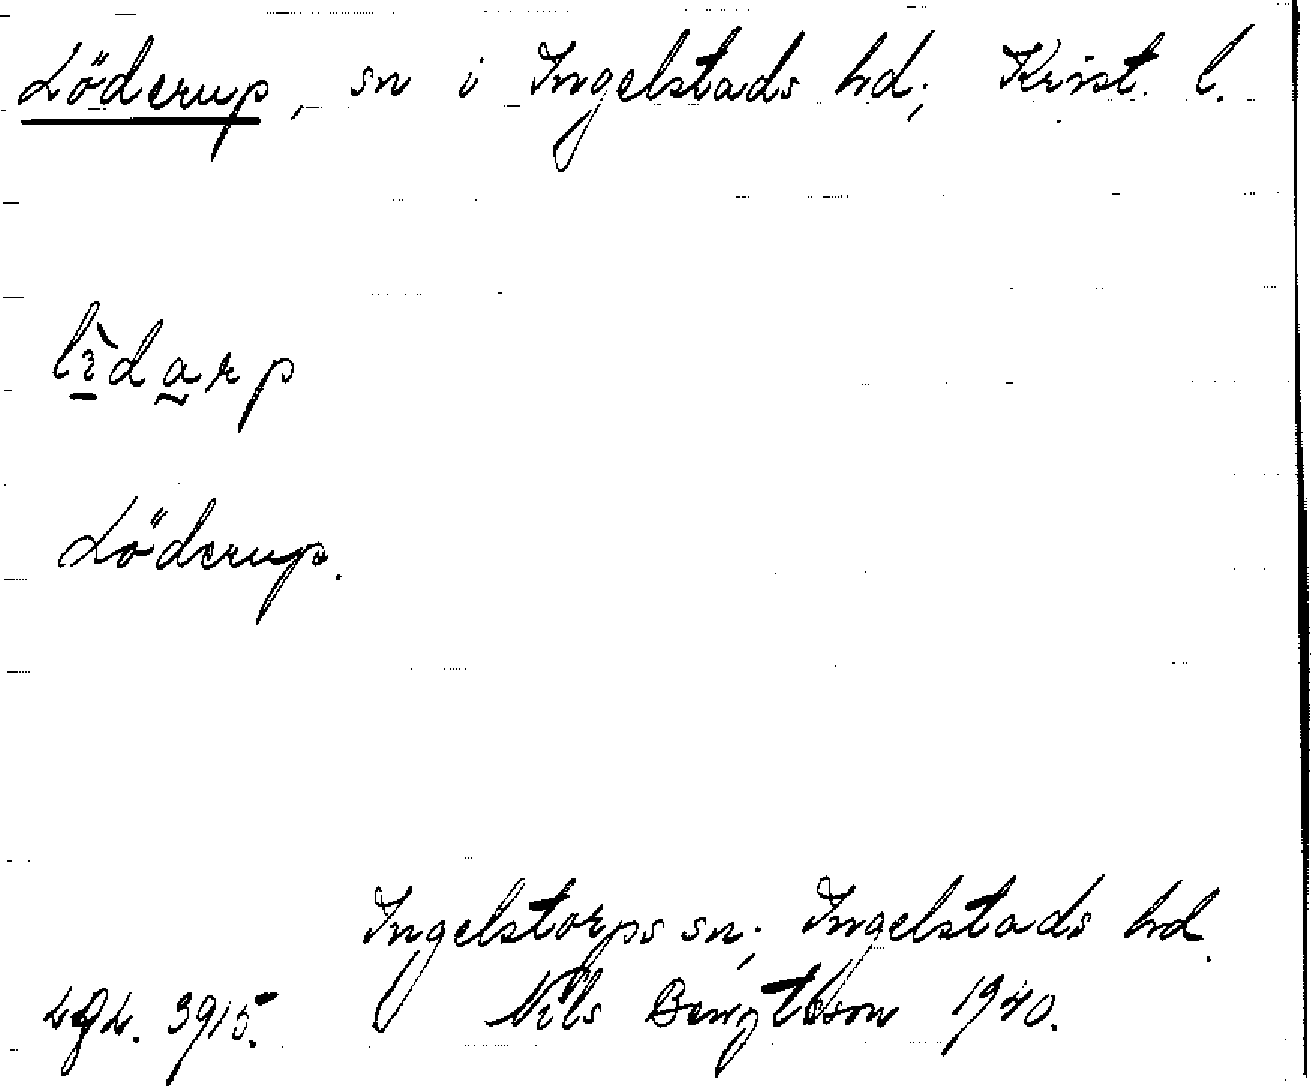 Löderup, sn i Ingelstads hd; Krist. l.
Löderup.
Ingelstorps sn; Ingelstads hd.
3915. Nils Bengtsson 1940.